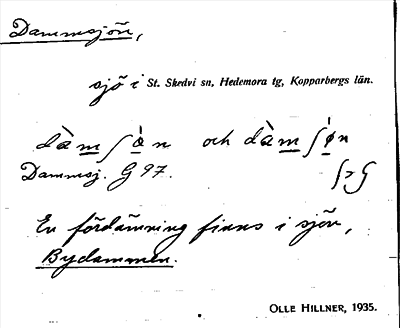 Dammsjön,
sjö i St. Skedvi sn, Hedemora tg, Kopparbergs län.
dàmʃòn och dàmʃø̀n
Dammsj. G 97. ʃ > G
En fördämning finns i sjön,
Bydammen.
OLLE HILLNER, 1935.